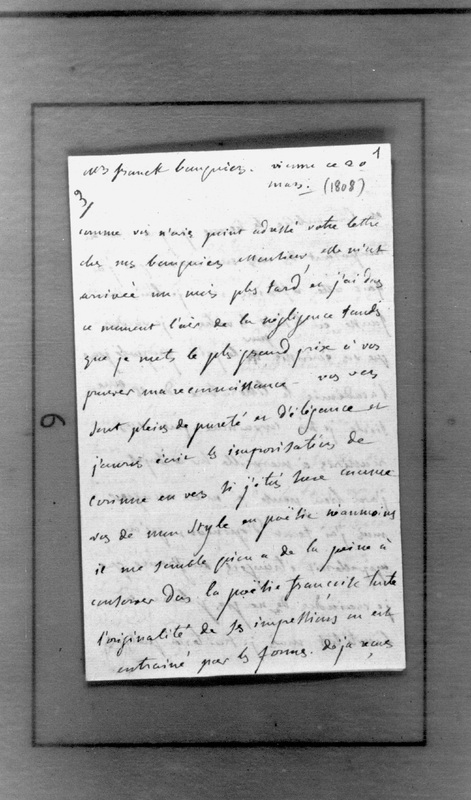 1
chez franck banquier. vienne ce 20
mars. (1808)
3/
comme vous n'avés point adressé votre lettre
chez mes banquiers Monsieur, elle m'est
arrivée un mois plus tard et j'ai dans
ce moment l'air de la négligence tandis
que je mets le plus grand prix à vous
prouver ma reconnaissance - vos vers
sont pleins de pureté et d'élégance et
j'aurois écrit les improvisations de
Corinne en vers si j'étois sure comme
vous de mon style en poësie néanmoins
il me semble qu'on a de la peine à
conserver dans la poësie françoise toute
l'originalité de ses impressions on est
entrainé par les formes. déja reçues
6